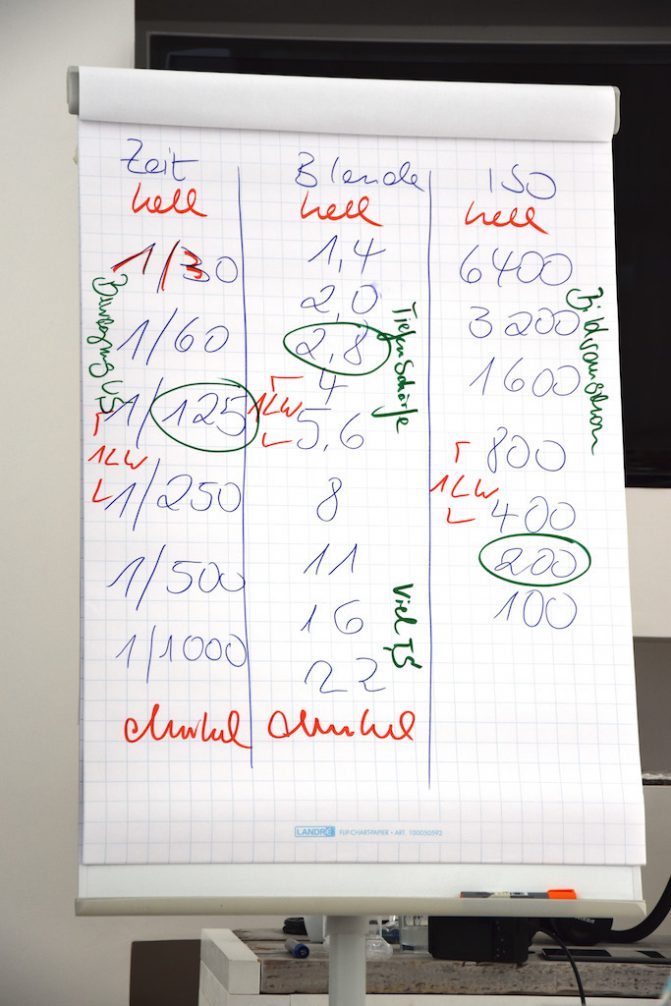 Zeit
hell
1/30
1/60
1/125
1LW
1/250
1/500
1/1000
dunkel
Blende
hell
1,4
2,0
2,8
4
1LW
5,6
8
11
16
22
dunkel
Tiefenschärfe
Viel TS
ISO
hell
6400
3200
1600
800
1LW
400
200
100
Bildrauschen
LANDRÉ FLIP-CHART-PAPIER • ART. 100050592